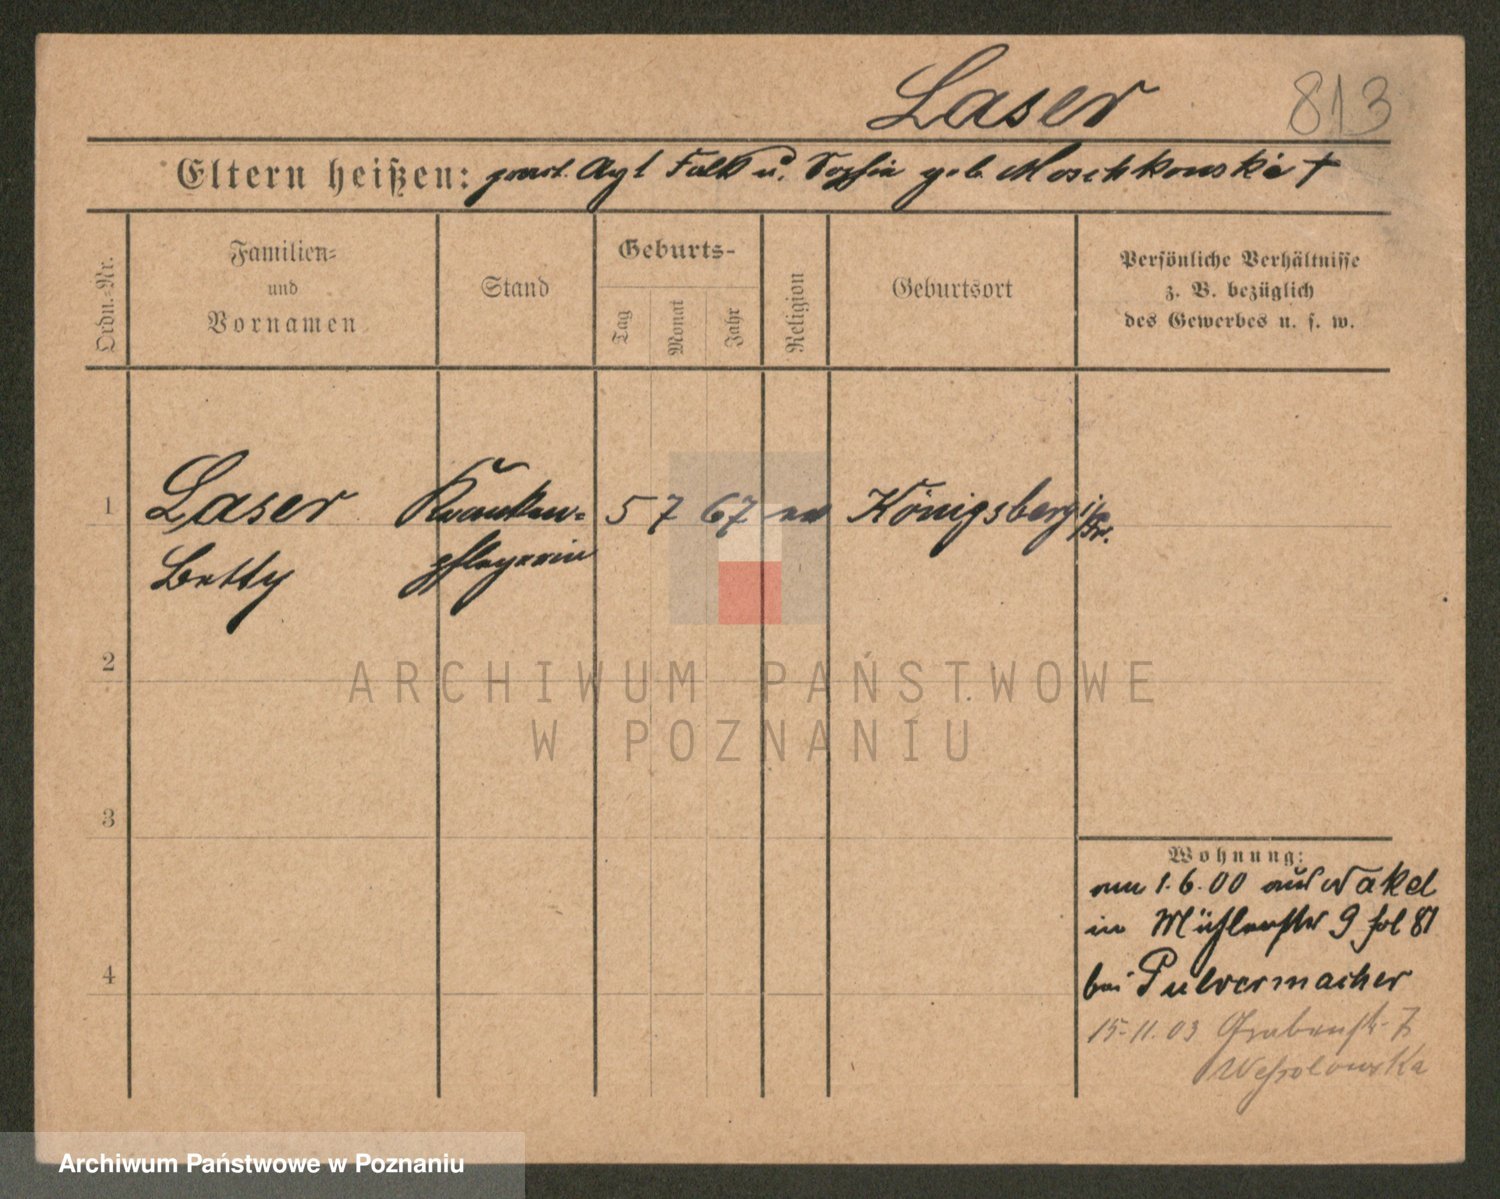 Laser 813
Eltern heißen: pract. Arzt Falk u. Sophie geb. Moschkowski †
Ordn.-Nr.
Familien-
und
Vornamen
Stand
Geburts-
Tag
Monat
Jahr
Religion
Geburtsort
Persönliche Verhältnisse
z. B. bezüglich
des Gewerbes u. s. w.
1 Laser Kranken- 5 7 67 Königsberg i/Pr.
Betty pflegerin
2
ARCHIWUM PAŃSTWOWE
W POZNANIU
3
Wohnung:
am 1.6.00
in Mühlenstr 9 fol 81
bei Pulvermacher
4
15.11.03 Grabenstr 7
Wessolowska
Archiwum Państwowe w Poznaniu